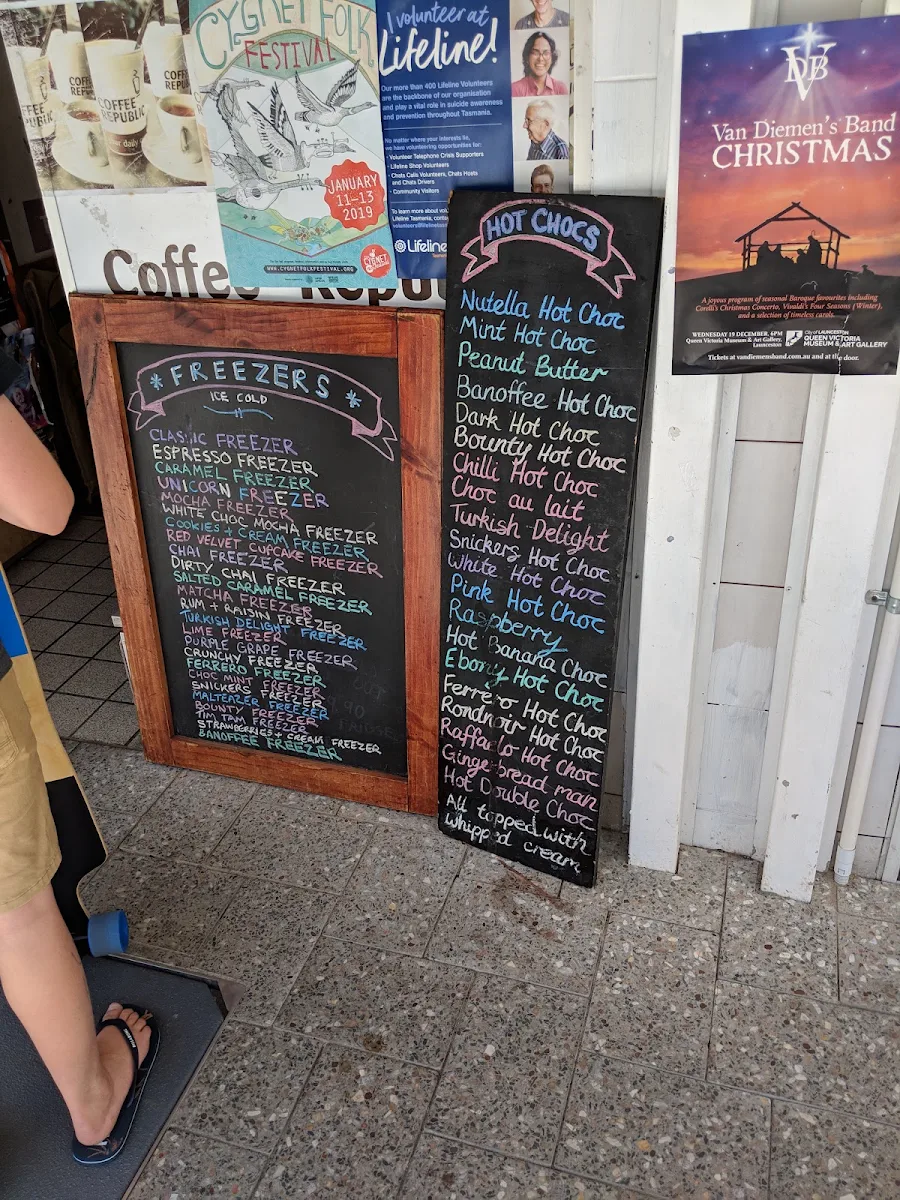 COFFEE REPUBLIC
CYGNET FOLK
FESTIVAL
JANUARY
11-13
2019
WWW.CYGNETFOLKFESTIVAL.ORG
CYGNET
I volunteer at
Lifeline!
Our more than 400 Lifeline Volunteers
are the backbone of our organisation
and play a vital role in suicide awareness
and prevention throughout Tasmania.
No matter where your interests lie,
we have volunteering opportunities for:
· Volunteer Telephone Crisis Supporters
· Lifeline Shop Volunteers
· Chats Calls Volunteers, Chats Hosts
and Chats Drivers
· Community Visitors
To learn more about
Lifeline Tasmania,
Lifeline
Coffee Repu
VDB
Van Diemen's Band
CHRISTMAS
A joyous program of seasonal Baroque favourites including
Corelli's Christmas Concerto, Vivaldi's Four Seasons (Winter),
and a selection of timeless carols.
WEDNESDAY 19 DECEMBER, 6PM
Queen Victoria Museum & Art Gallery,
Launceston
City of LAUNCESTON
QUEEN VICTORIA
MUSEUM & ART GALLERY
Tickets at vandiemensband.com.au and at the door.
FREEZERS
ICE COLD
CLASSIC FREEZER
ESPRESSO FREEZER
CARAMEL FREEZER
UNICORN FREEZER
MOCHA FREEZER
WHITE CHOC MOCHA FREEZER
COOKIES + CREAM FREEZER
RED VELVET CUPCAKE FREEZER
CHAI FREEZER
DIRTY CHAI FREEZER
SALTED CARAMEL FREEZER
MATCHA FREEZER
RUM + RAISIN FREEZER
TURKISH DELIGHT FREEZER
LIME FREEZER
PURPLE GRAPE FREEZER
CRUNCHY FREEZER
FERRERO FREEZER
CHOC MINT FREEZER
SNICKERS FREEZER
MALTEAZER FREEZER
BOUNTY FREEZER
TIM TAM FREEZER
STRAWBERRIES + CREAM FREEZER
BANOFFEE FREEZER
HOT CHOCS
Nutella Hot Choc
Mint Hot Choc
Peanut Butter
Banoffee Hot Choc
Dark Hot Choc
Bounty Hot Choc
Chilli Hot Choc
Choc au lait
Turkish Delight
Snickers Hot Choc
White Hot Choc
Pink Hot Choc
Raspberry
Hot Banana Choc
Ebony Hot Choc
Ferrero Hot Choc
Rondnoir Hot Choc
Raffaelo Hot Choc
Gingerbread man
Hot Double Choc
All topped with
whipped cream